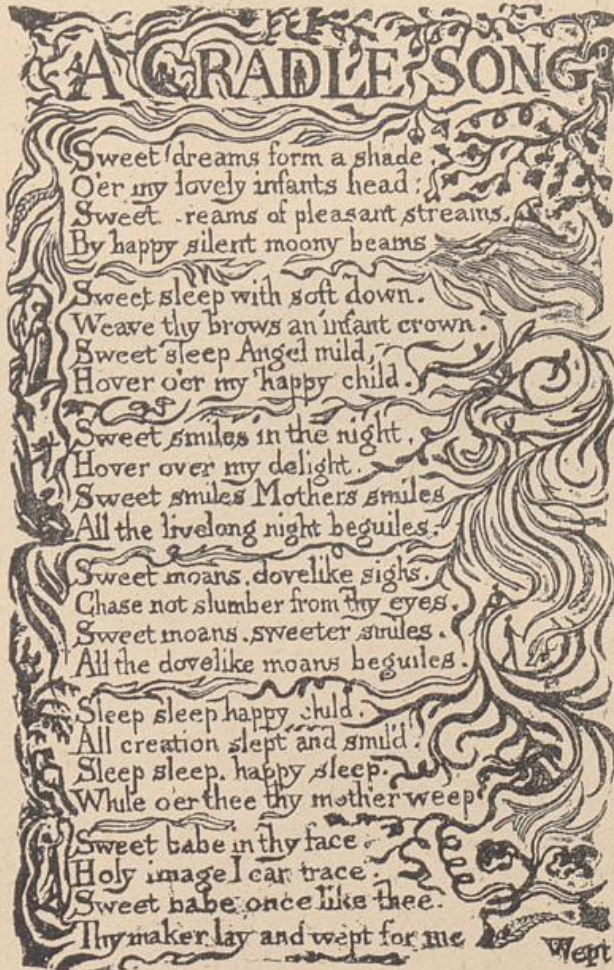 A CRADLE SONG
Sweet dreams form a shade.
O'er my lovely infants head:
Sweet reams of pleasant streams,
By happy silent moony beams
Sweet sleep with soft down.
Weave thy brows an infant crown.
Sweet sleep Angel mild,
Hover o'er my happy child.
Sweet smiles in the night,
Hover over my delight.
Sweet smiles Mothers smiles
All the livelong night beguiles.
Sweet moans, dovelike sighs,
Chase not slumber from thy eyes.
Sweet moans, sweeter smiles.
All the dovelike moans beguiles.
Sleep sleep happy child.
All creation slept and smil'd.
Sleep sleep, happy sleep.
While o'er thee thy mother weep
Sweet babe in thy face
Holy image I can trace.
Sweet babe once like thee.
Thy maker lay and wept for me
Wept